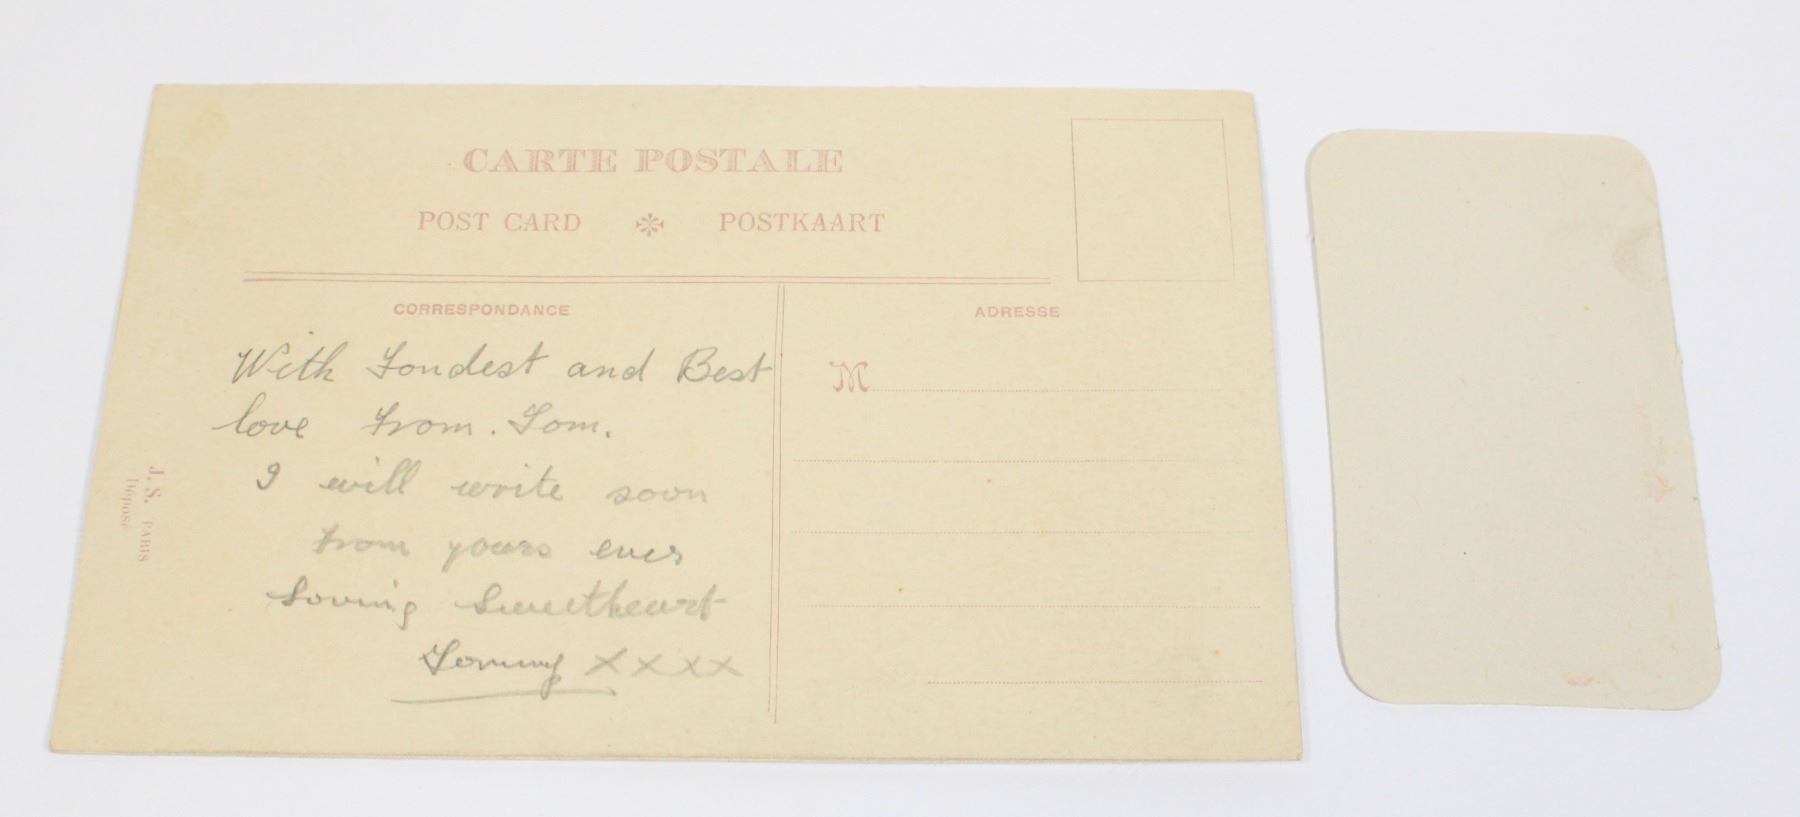 CARTE POSTALE
POST CARD POSTKAART
CORRESPONDANCE
With Fondest and Best
love from. Tom.
I will write soon
from yours ever
Loving Sweetheart
Tommy xxxx
ADRESSE
M
J. S. PARIS
Déposé